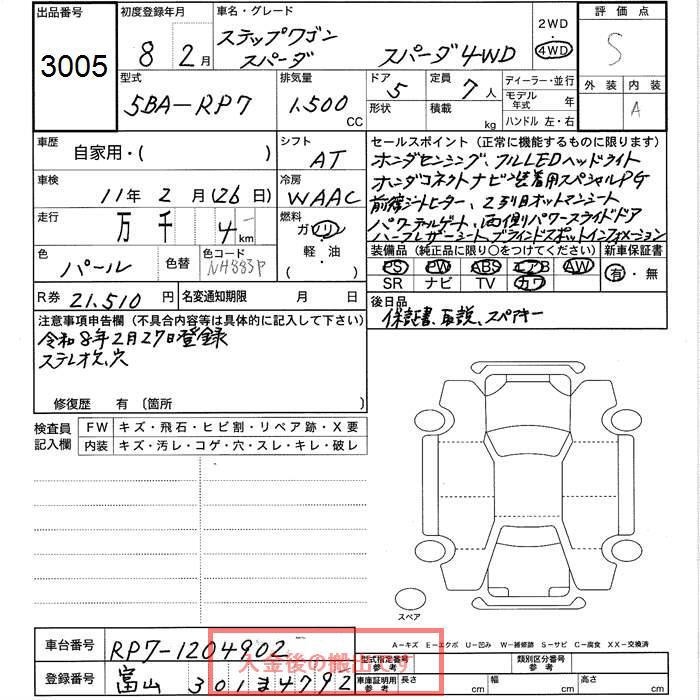 出品番号
3005
初度登録年月
8年 2月
車名・グレード
ステップワゴン
スパーダ
スパーダ 4WD
2WD
4WD
評価点
S
型式
5BA-RP7
排気量
1,500 CC
ドア
5
形状
定員
7人
積載
kg
ディーラー・並行
モデル年式 年
ハンドル 左・右
外装
内装
A
車歴
自家用・( )
シフト
AT
車検
11年 2月 (26日)
冷房
WAAC
走行
万 千 4 km
燃料
ガソリン
軽・油
( )
色
パール
色替
色コード
NH883P
R券
21,510 円
名変通知期限 月 日
セールスポイント (正常に機能するものに限ります)
ホンダセンシング、フルLEDヘッドライト
ホンダコネクトナビン装着用スペシャルPG
前線シートヒーター、2列目オットマンシート
パワーテールゲート、両側パワースライドドア
ハーフレザーシート、ブラインドスポットインフォメーション
装備品 (純正品に限り○をつけてください)
PS PW ABS エアB AW
SR ナビ TV カワ
新車保証書
有・無
後日品
保証書、取説、スペアキー
注意事項申告欄 (不具合内容等は具体的に記入して下さい)
令和8年2月27日登録
ステレオ欠、穴
修復歴 有 (箇所 )
検査員記入欄
FW キズ・飛石・ヒビ割・リペア跡・X要
内装 キズ・汚レ・コゲ・穴・スレ・キレ・破レ
スペア
A-キズ E-エクボ U-凹み W-補修跡 S-サビ C-腐食 XX-交換済
車台番号
RP7-1204902
入金後の搬出です
登録番号
富山 301 ま 4792
型式指定番号
参考
類別区分番号
参考
車庫証明用
参考
長さ cm
幅 cm
高さ cm